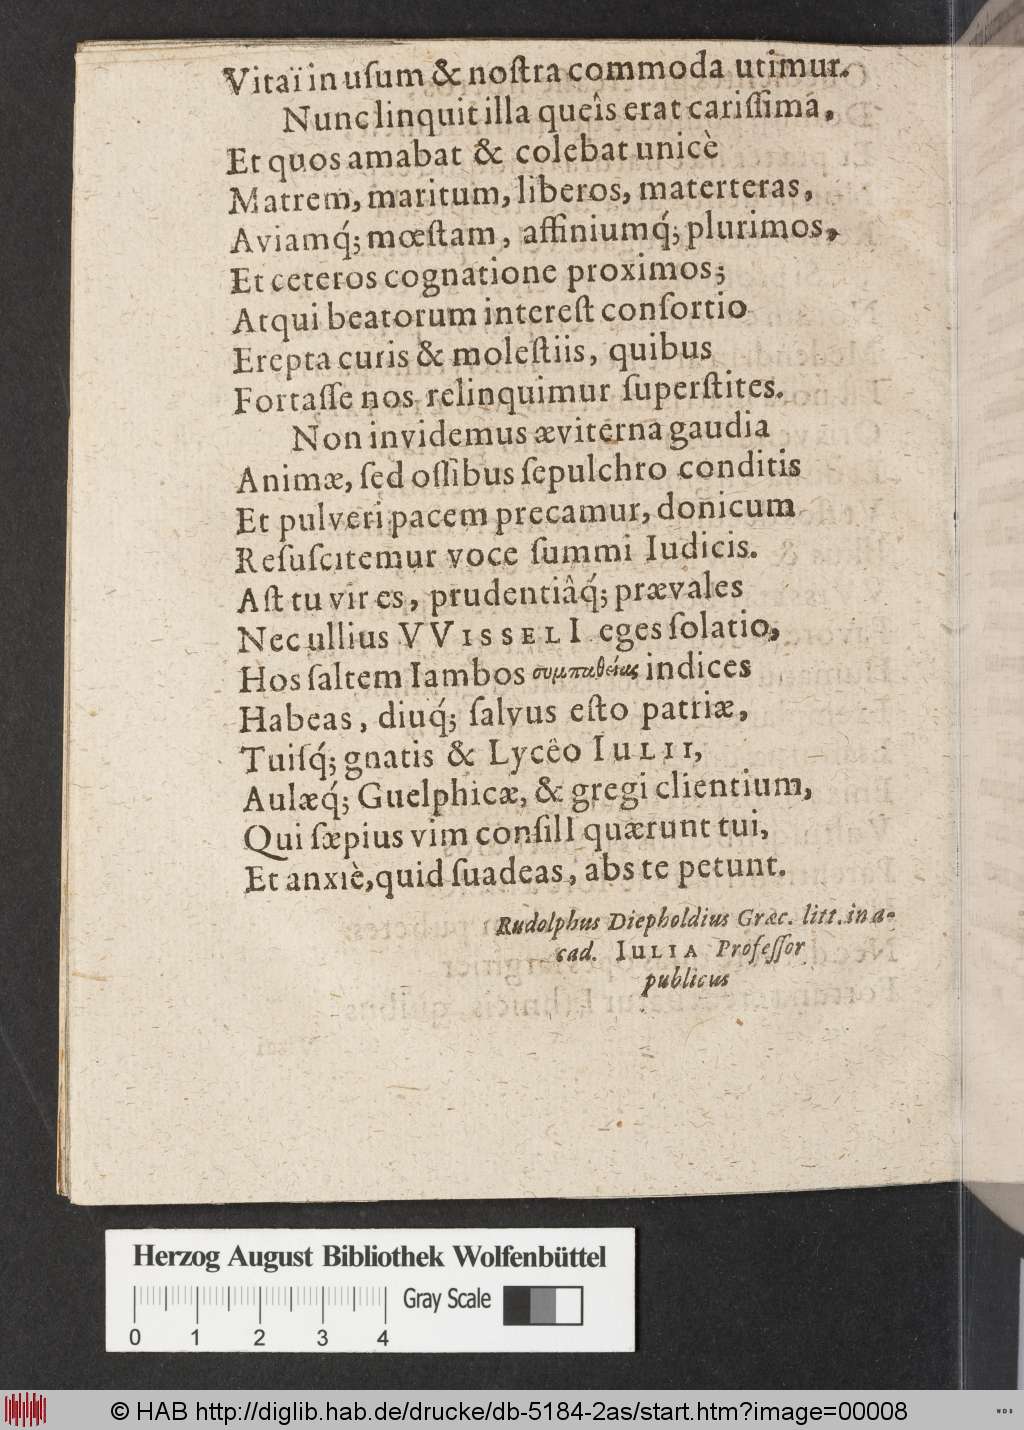 Vitaï in uſum & noſtra commoda utimur.
Nunc linquit illa queîs erat cariſſima,
Et quos amabat & colebat unicè
Matrem, maritum, liberos, materteras,
Aviamq́; mœſtam, affiniumq́; plurimos,
Et ceteros cognatione proximos;
Atqui beatorum intereſt conſortio
Erepta curis & moleſtiis, quibus
Fortaſſe nos relinquimur ſuperſtites.
Non invidemus æviterna gaudia
Animæ, ſed oſſibus ſepulchro conditis
Et pulveri pacem precamur, donicum
Reſuſcitemur voce ſummi Iudicis.
Aſt tu vir es, prudentiâq́; prævales
Nec ullius VVISSELI eges ſolatio,
Hos ſaltem Iambos συμπαθείας indices
Habeas, diuq́; ſalvus eſto patriæ,
Tuiſq́; gnatis & Lycêo IULII,
Aulæq́; Guelphicæ, & gregi clientium,
Qui ſæpius vim conſilI quærunt tui,
Et anxiè, quid ſuadeas, abs te petunt.
Rudolphus Diepholdius Græc. litt. in a-
cad. IULIA Profeſſor
publicus
Herzog August Bibliothek Wolfenbüttel
Gray Scale
0 1 2 3 4
© HAB http://diglib.hab.de/drucke/db-5184-2as/start.htm?image=00008
WDB